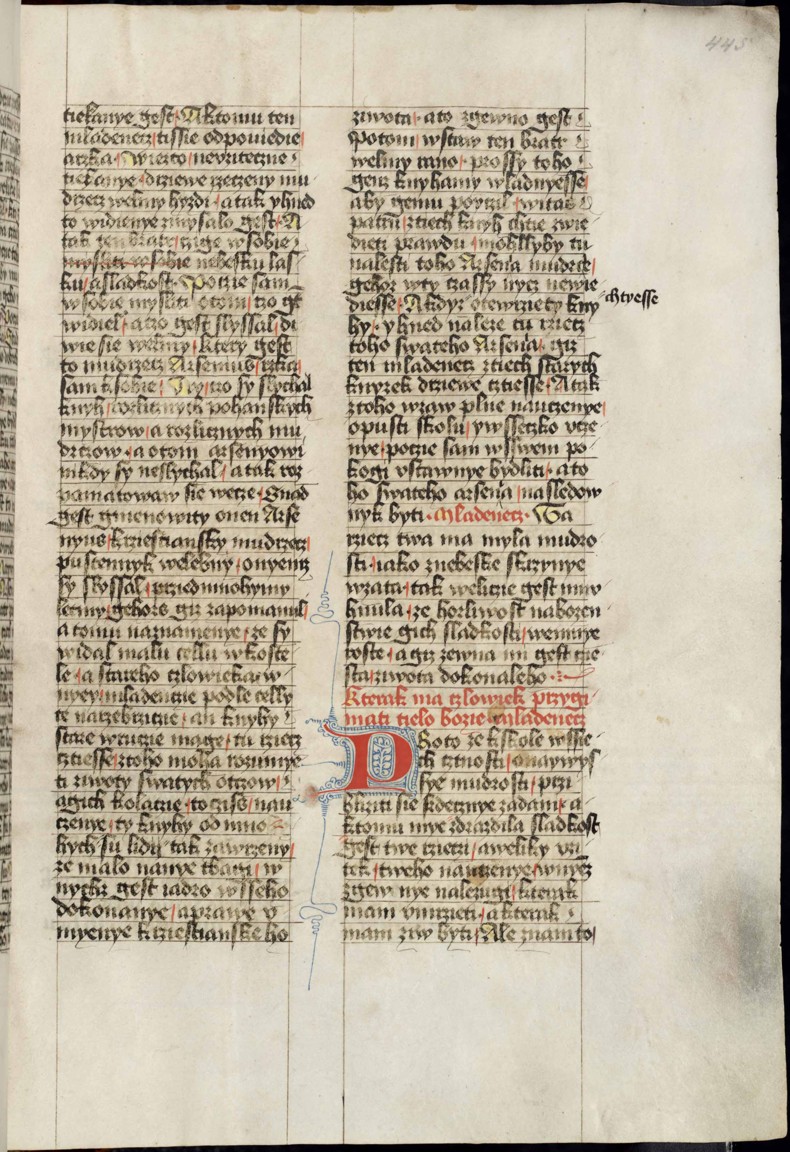 445
tiekanye gest · A ktomu ten
mladenecz tissie odpowiedie
arzka · Wierto neuziteczne
tiekanye · drziewe rzeczeny mu
drzecz welmy hyzdi · a tak yhned
to widienye zmysalo gest · A
tak ten bratr tize w sobie
mysliti w sobie nebesku las
ku a sladkost · Poczie sam
w sobie mysliti o tom czo gt
widiel a czo gest slyssal di
wie sie welmy · Ktery gest
to mudrzecz Arsenius rzka
sam k sobie · Ty czo sy slychal
knyh rozlicznych pohanskych
mystrow a rozlicznych mu
drczow · a o tom arsenyowi
nikdy sy neslychal · a tak roz
pamatowaw sie wecze · Snad
gest gmenowity onen Arse
nyus krziestiansky mudrzecz
pustennyk welebny · o nyemz
sy slyssal przed mnohymy
lethmy gehozs giz zapomanul
a tomu naznamenye · ze sy
widal malu cellu w koste
le a stareho czlowieka w
nyey mladencze podle celly
te narzebrzicze · an knyhy
stare w rucze mage tu rziecz
cztiesse z toho moha rozumye
ti ziwoty swatych otczow
a gich kolacze · to czuss nau
czenye · ty knyhy od mno
hych su lidij tak zawrzeny
ze malo nanye tbagi · w
nychz gest iadro wsseho
dokonanye · a prawe v
myenye krziestianskeho
ziwota · a to zgewno gest
Potom wstaw ten bratr
welmy rano · prossy toho
genz knyhamy wladnyesse
aby gemu pozicil witas
patru z tiech knyh chtie zwie
dieti prawdu · mohllyby tu
nalesti toho Arsena mudrce
gehoz w ty czassy nycz newie
diesse · A kdyz otewrziety kny
chtyesse
hy · yhned naleze tu rziecz
toho swateho Arsena · giz
ten mladenecz z tiech starych
knyzek drziewe cztiesse · A tak
z toho wzaw plne nauczenye
opusti skolu y wsseczko vcze
nye · poczie sam w swem po
kogi vstawnye bydliti · a to
ho swateho arsena nasledow
nyk byti · Mladenecz · Wa
rziecz twa ma myla mudro
sti · iako z nebeske skrzynye
wzata · tak welicze gest mny
hnula · ze horliwost nabozen
stwie gich sladkosti wemnye
roste · a giz zewna mi gest cze
sta ziwota dokonaleho
Kterak ma czlowiek przygi
mati tielo bozie · Mladenecz
Proto ze k skole wssie
ch cztnosti · a naywys
ssye mudrosti · przi
bliziti sie srdecznye zadam · a
k tomu mye zdrazdila sladkost
gest twe rzieczi · a weliky vzi
tek · tweho nauczenye · w nyez
zgewnye nalezugi · kterak
mam vmrzieti · a kterak
mam ziw byti · Ale znamto